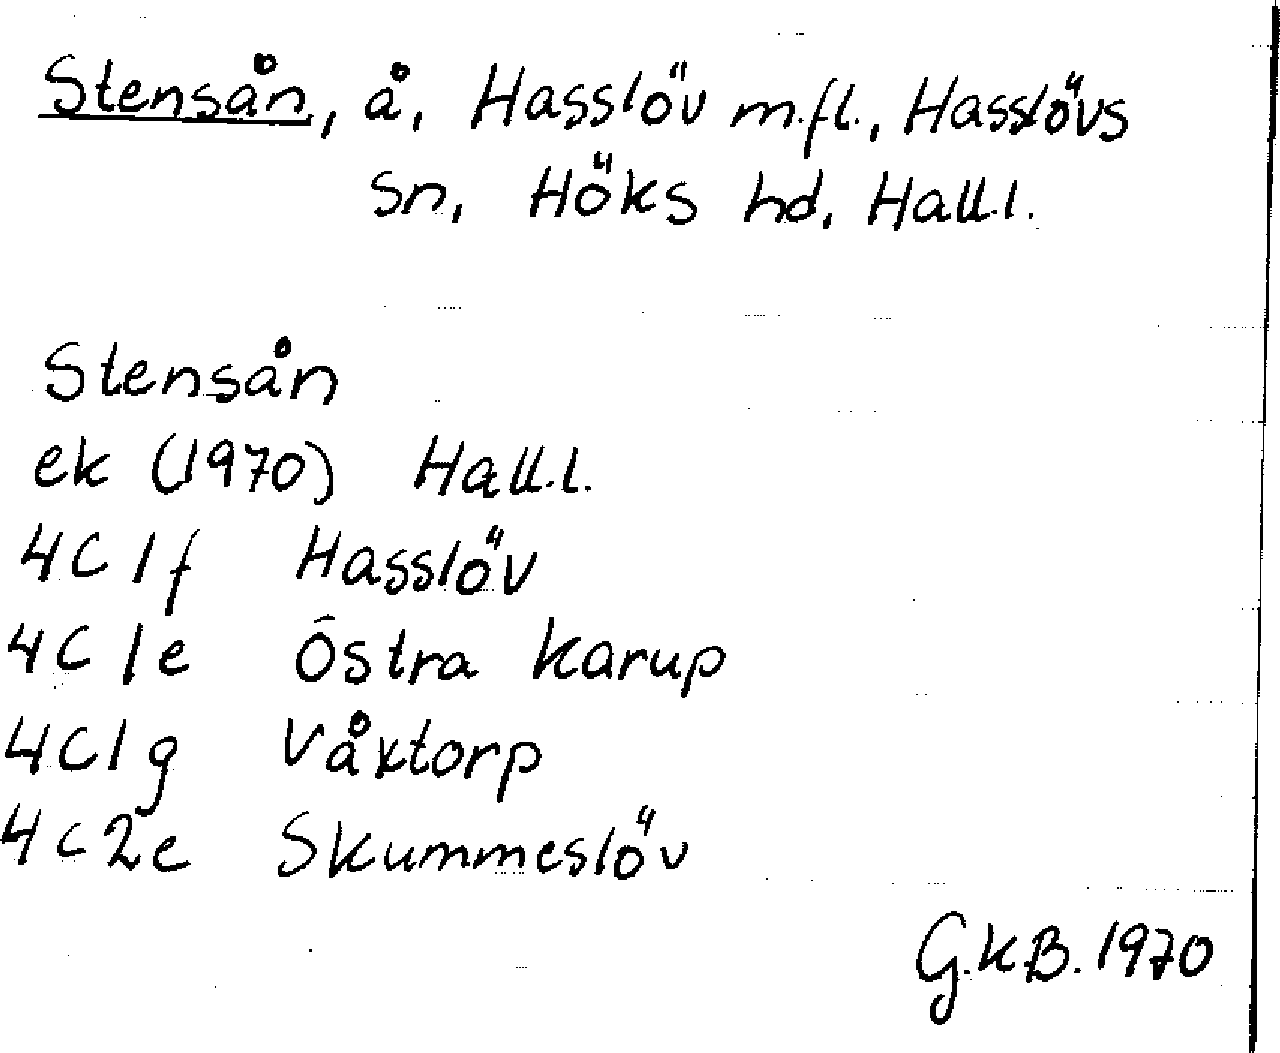 Stensån, å, Hasslöv m.fl., Hasslövs
sn, Höks hd, Hall.l.
Stensån
ek (1970) Hall.l.
4C 1f Hasslöv
4C 1e Östra Karup
4C1g Våxtorp
4C2e Skummeslöv
G.K.B. 1970